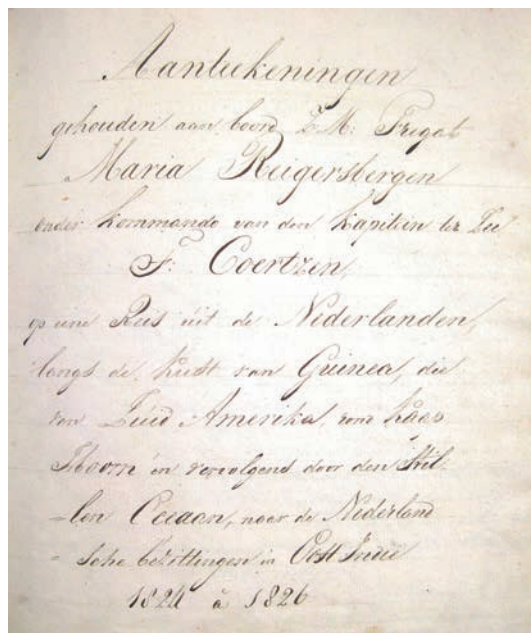 Aanteekeningen
gehouden aan boord Z. M. Fregat
Maria Reigersbergen
onder kommando van den Kapitein ter Zee
F. Coertzen,
op eene Reis uit de Nederlanden,
langs de kust van Guinea, die
van Zuid Amerika, om Kaap
Hoorn en vervolgend door den Stil-
-len Oceaan, naar de Nederland-
-sche bezittingen in Oost Indië
1824 à 1826